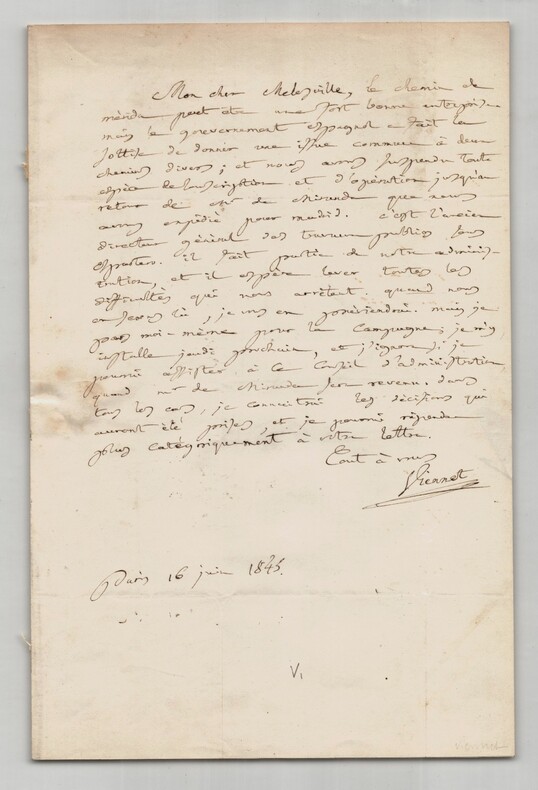 Mon cher Melesville, le chemin de
mérida peut être une fort bonne entreprise
mais le gouvernement espagnol a fait la
sottise de donner une issue commune à deux
chemins divers; et nous avons suspendu toute
espèce de souscription et d'opération jusqu'au
retour de Mr de Miranda que nous
avons expédié pour madrid. c'est l'ancien
directeur général des travaux publics sous
Espartero. il fait partie de notre adminis-
tration, et il espère lever toutes les
difficultés qui nous arrêtent. quand nous
en serons là, je vous en préviendrai. mais je
pars moi-même pour la campagne; je m'y
installe jeudi prochain, et j'ignore si je
pourrai assister à ce Conseil d'administration
quand mr de Miranda sera revenu. dans
tous les cas, je connaitrai les décisions qui
auront été prises, et je pourrai répondre
plus catégoriquement à votre lettre.
Tout à vous
Viennet
Paris 16 juin 1845.
V,